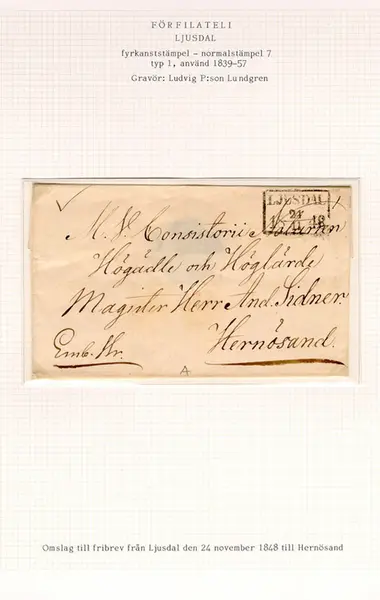 FÖRFILATELI
LJUSDAL
fyrkanststämpel – normalstämpel 7
typ 1, använd 1839-57
Gravör: Ludvig P:son Lundgren
LJUSDAL
24
11
18
M. V. Consistorii Notarien
Högädle och Höglärde
Magister Herr And. Sidner.
Hernösand.
Emb. Hr.
A
Omslag till fribrev från Ljusdal den 24 november 1848 till Hernösand